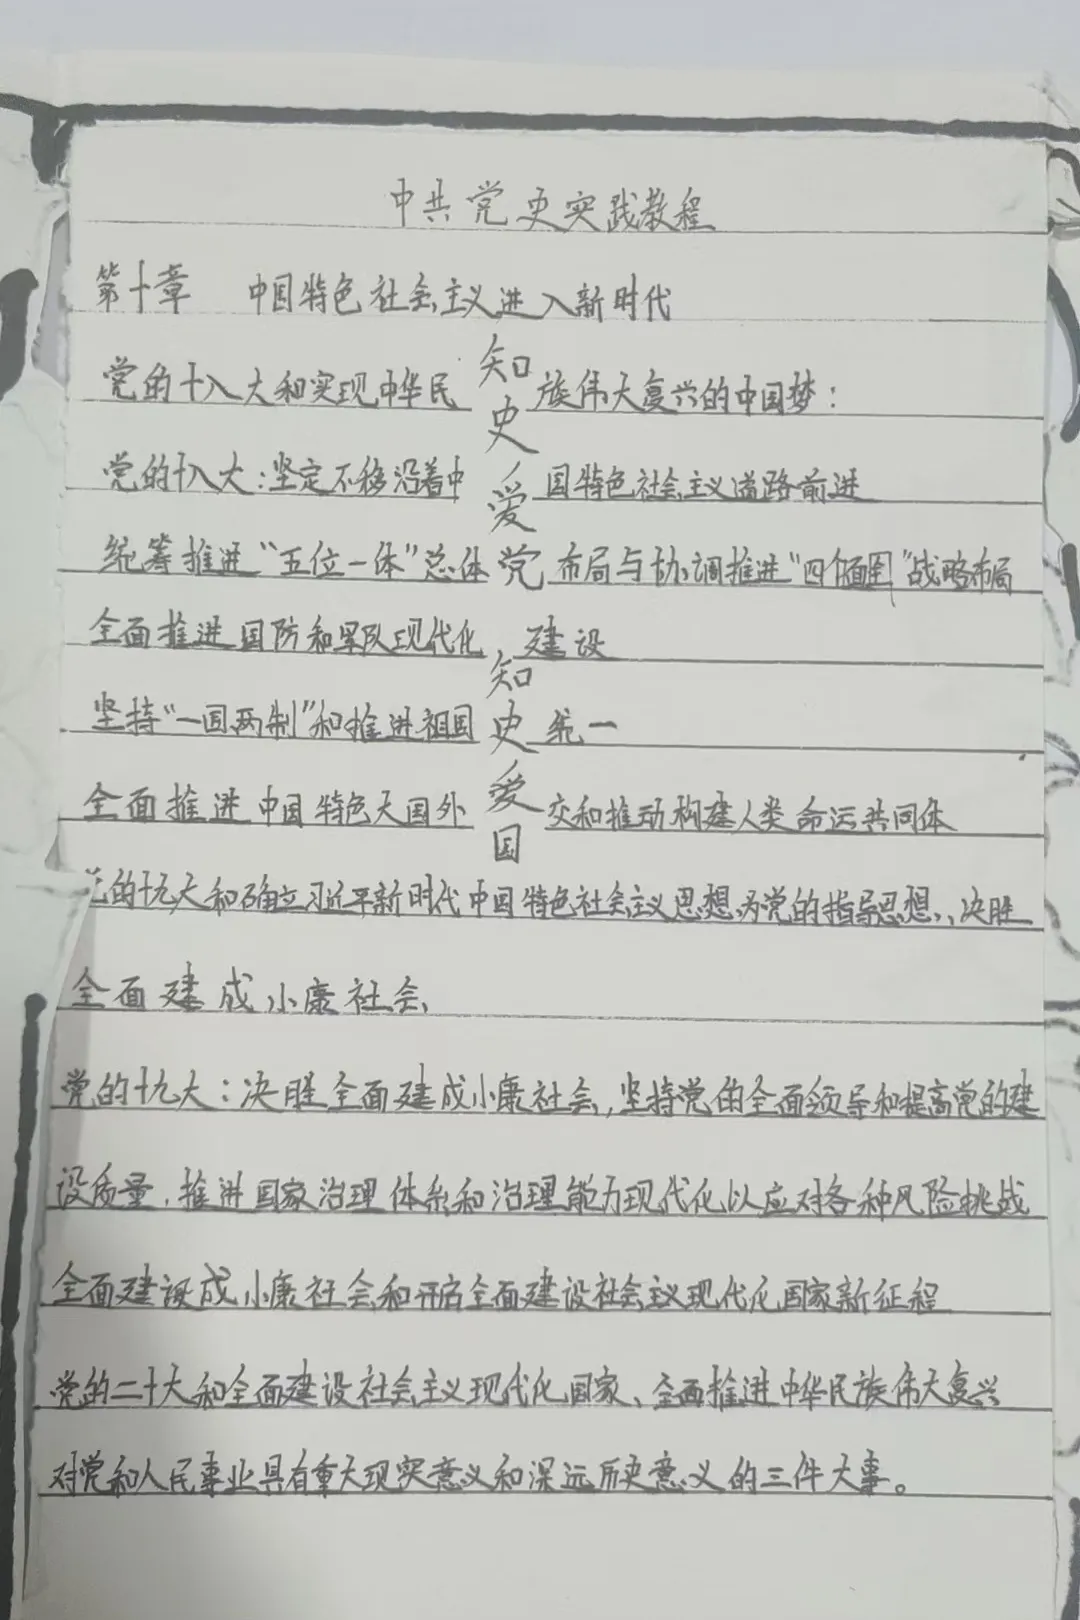 中共党史实践教程
第十章 中国特色社会主义进入新时代
党的十八大和实现中华民族伟大复兴的中国梦：
党的十八大：坚定不移沿着中国特色社会主义道路前进
统筹推进“五位一体”总体布局与协调推进“四个全面”战略布局
全面推进国防和军队现代化建设
坚持“一国两制”和推进祖国统一
全面推进中国特色大国外交和推动构建人类命运共同体
知史爱党
知史爱国
的十九大和确立习近平新时代中国特色社会主义思想为党的指导思想，、决胜
全面建成小康社会
党的十九大：决胜全面建成小康社会，坚持党的全面领导和提高党的建
设质量，推进国家治理体系和治理能力现代化以应对各种风险挑战
全面建设成小康社会和开启全面建设社会主义现代化国家新征程
党的二十大和全面建设社会主义现代化国家、全面推进中华民族伟大复兴
对党和人民事业具有重大现实意义和深远历史意义的三件大事。